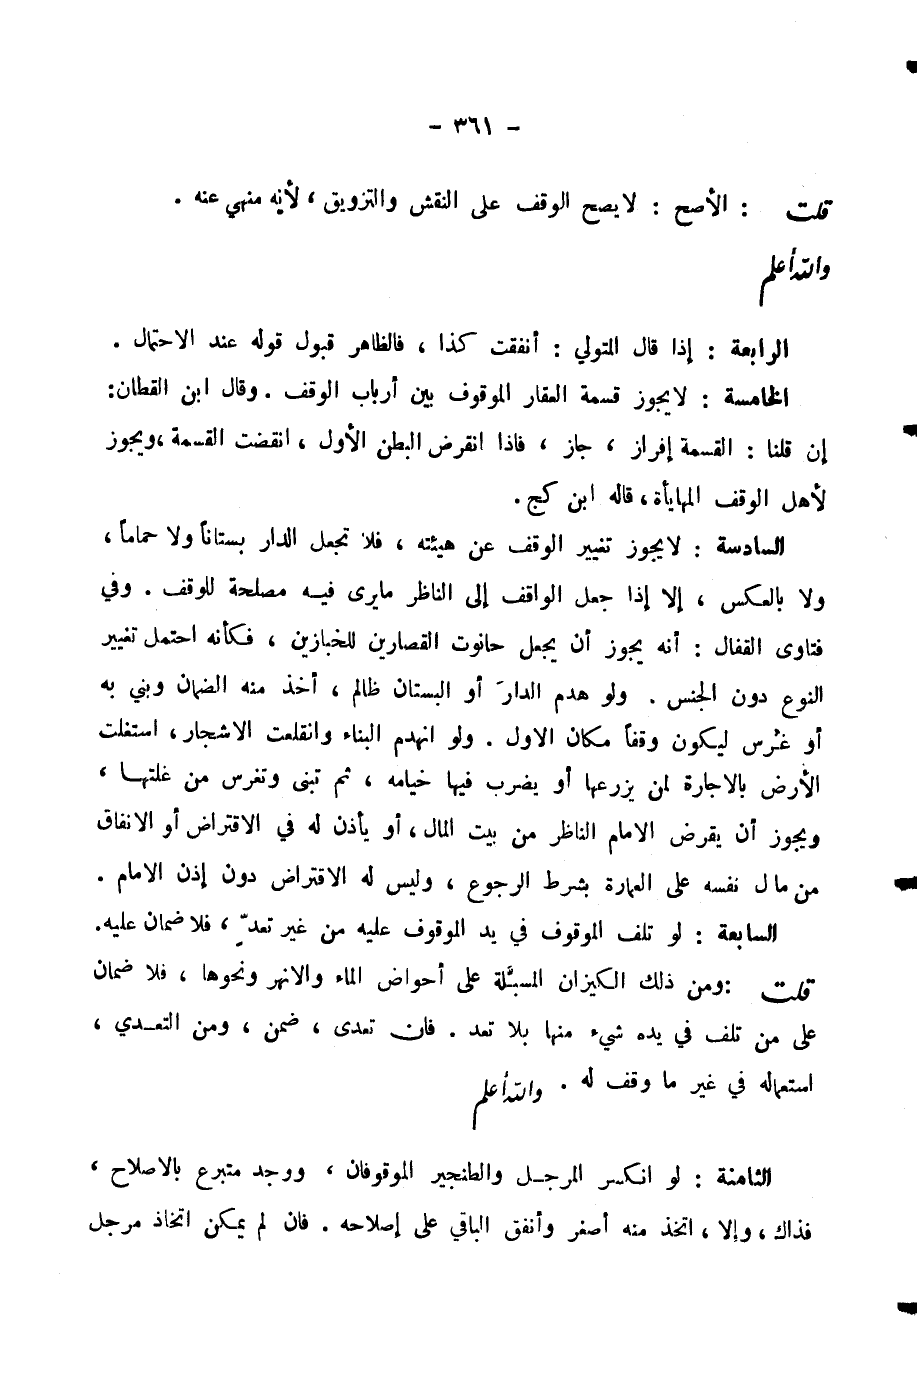 - ٣٦١ -
قلت : الأصح : لا يصح الوقف على النقش والتزويق ، لأنه منهي عنه .
والله أعلم
الرابعة : إذا قال المتولي : أنفقت كذا ، فالظاهر قبول قوله عند الاحتمال .
الخامسة : لا يجوز قسمة العقار الموقوف بين أرباب الوقف . وقال ابن القطان:
إن قلنا : القسمة إفراز ، جاز ، فاذا انقرض البطن الأول ، انقضت القسمة ،ويجوز
لأهل الوقف المهايأة ، قاله ابن كج .
السادسة : لا يجوز تغيير الوقف عن هيئته ، فلا تجعل الدار بستاناً ولا حماماً ،
ولا بالعكس ، إلا إذا جعل الواقف إلى الناظر ما يرى فيه مصلحة للوقف . وفي
فتاوى القفال : أنه يجوز أن يجعل حانوت القصارين للخبازين ، فكأنه احتمل تغيير
النوع دون الجنس . ولو هدم الدارَ أو البستان ظالم ، أخذ منه الضمان وبني به
أو غُرس ليكون وقفاً مكان الاول . ولو انهدم البناء وانقلعت الاشجار ، استغلت
الأرض بالاجارة لمن يزرعها أو يضرب فيها خيامه ، ثم تبنى وتغرس من غلتها ،
ويجوز أن يقرض الامام الناظر من بيت المال ، أو يأذن له في الاقتراض أو الانفاق
من مال نفسه على العمارة بشرط الرجوع ، وليس له الاقتراض دون إذن الامام .
السابعة : لو تلف الموقوف في يد الموقوف عليه من غير تعدٍّ ، فلا ضمان عليه.
قلت :ومن ذلك الكيزان المسبَّلة على أحواض الماء والانهر ونحوها ، فلا ضمان
على من تلف في يده شيء منها بلا تعد . فان تعدى ، ضمن ، ومن التعدي ،
استعماله في غير ما وقف له . والله أعلم
الثامنة : لو انكسر المرجل والطنجير الموقوفان ، ووجد متبرع بالاصلاح ،
فذاك ، وإلا ، اتخذ منه أصغر وأنفق الباقي على إصلاحه . فان لم يمكن اتخاذ مرجل